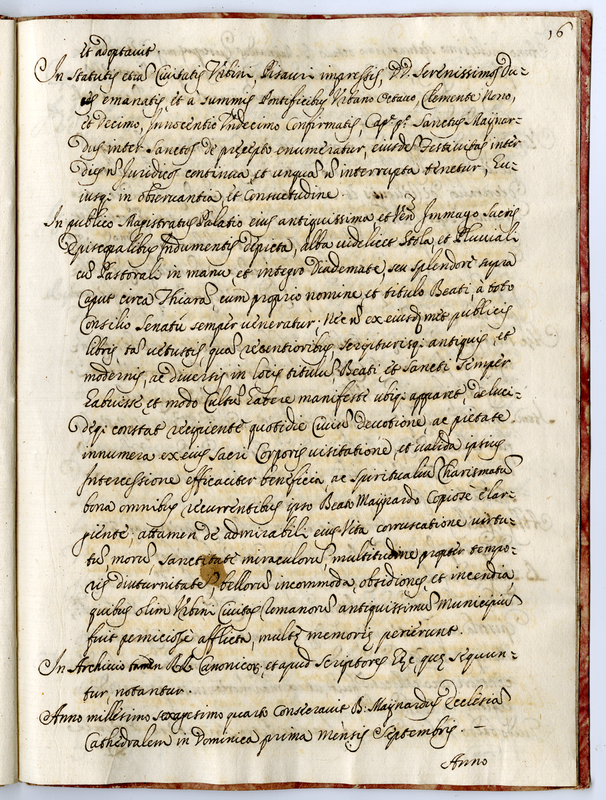 16
et adoptavit.
In Statutis etiã Civitatis Urbini Pisauri impressis, Serenissimos Du-
emanatis, et a Summis Pontificibus Urbano Octavo, Clemente Nono,
et Decimo, Innocentio Undecimo Confirmatis, Sanctus Maynar-
dus inter Sanctos de præcepto enumeratur, eiusdẽ Festivitas inter
dies ñ Juridicos continua, et unquã ñ interrupta tenetur,
in observantia, et Consuetudine.
In publico Magistratus Palatio eius antiquissima et Immago Sacris
Episcopalibus Indumentis depicta, alba videlicet Stola, et Pluviali
cũ Pastorali in manu, et integro Diademate, seu Splendore supra
Caput circa Thiarã, cum proprio nomine, et titulo Beati, a toto
Consilio Senatu semper veneratur; ex publicis
libris tã vetustis quã recentioribus scripturisq; antiquis, et
modernis, ac diversis in locis titulũ Beati et Sancti semper
habuisse, et modo Cultũ habere manifeste ubiq; apparet, De luci-
deq; constat recipiente quotidie Civiũ devotione, ac pietate
innumera ex eius Sacri Corporis visitatione, et valida ipsius
Intercessione efficaciter beneficia, ac spiritualiũ Charismatũ
bona omnibus recurrentibus ipso Beato Maynardo Copiose elar-
giente, attamen de admirabili eius Vita corruscatione virtu-
tũ, morũ sanctitate miraculorũ multitudine propter tempo-
ris diuturnitatẽ, bellorũ incommoda, obsidiones, et incendia,
quibus olim Urbini Civitas Romanorũ antiquissimũ Municipiũ
fuit perniciose afflicta, multæ memoriæ perierunt.
In Archivio tamen Canonicoꝝ, et apud Scriptores quæ sequun-
tur, notantur.
Anno millesimo sexagesimo quarto Consecravit B. Maynardus Ecclesiã
Cathedralem in Dominica prima mensis Septembris. -
Anno